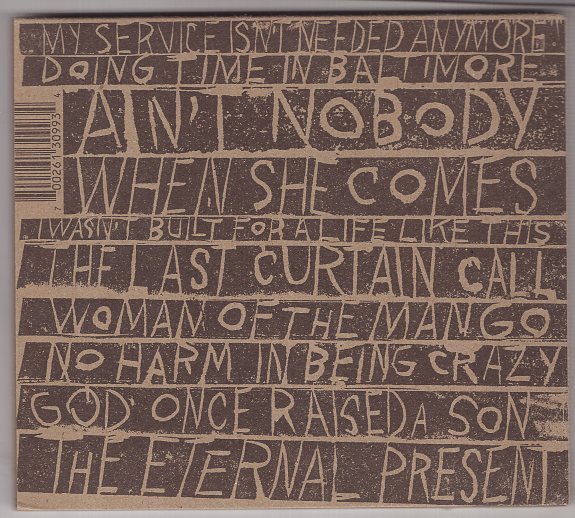 MY SERVICE ISN'T NEEDED ANYMORE
DOING TIME IN BALTIMORE
AIN'T NOBODY
WHEN SHE COMES
I WASN'T BUILT FOR A LIFE LIKE THIS
THE LAST CURTAIN CALL
WOMAN OF THE MANGO
NO HARM IN BEING CRAZY
GOD ONCE RAISED A SON
THE ETERNAL PRESENT
7 00261 30993 4